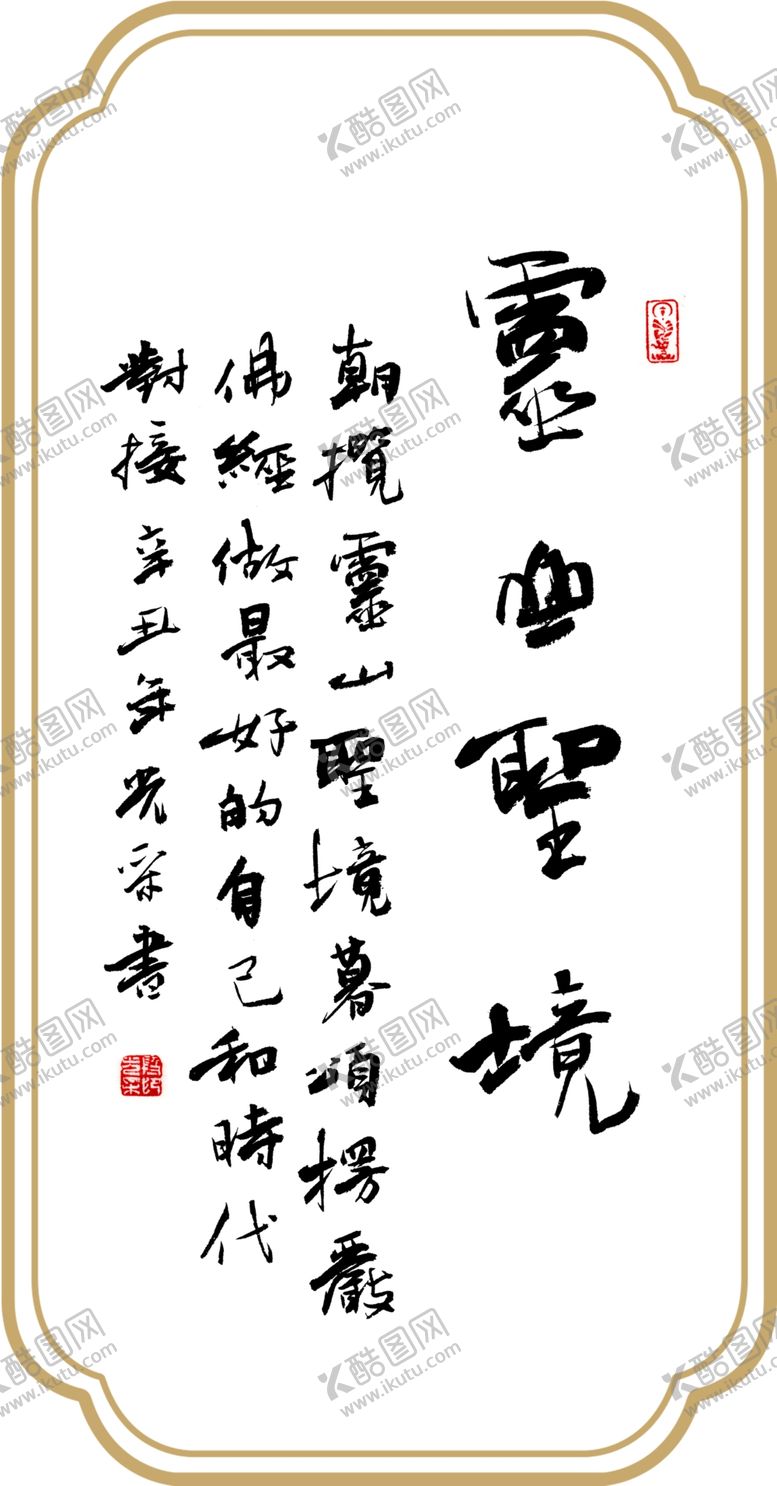 靈典聖境
朝攬靈山聖境暮頌楞嚴
佛經做最好的自己和時代
對接辛丑年光采書
酷图网
www.ikutu.com